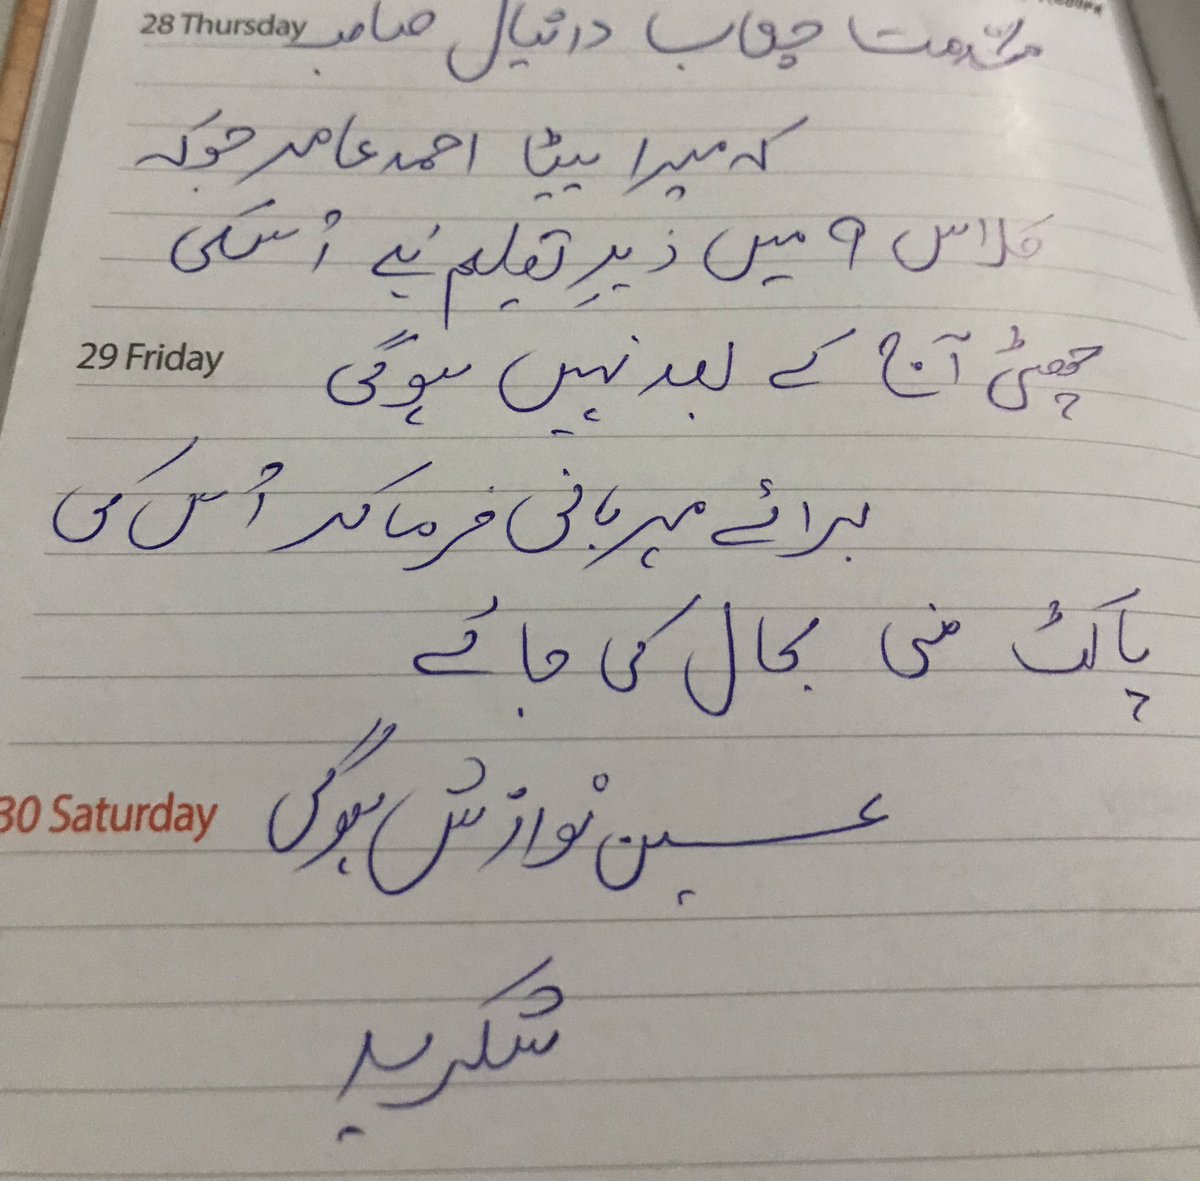 28 Thursday
خدمت جناب دانیال صاحب
کہ میرا بیٹا احمد عامر جوکہ
کلاس 9 میں زیرِ تعلیم ہے اُسکی
29 Friday
چھٹی آج کے بعد نہیں ہوگی
برائے مہربانی فرما کر اُس کی
پاکٹ منی بحال کی جائے
30 Saturday
عین نوازش ہوگی
شکریہ